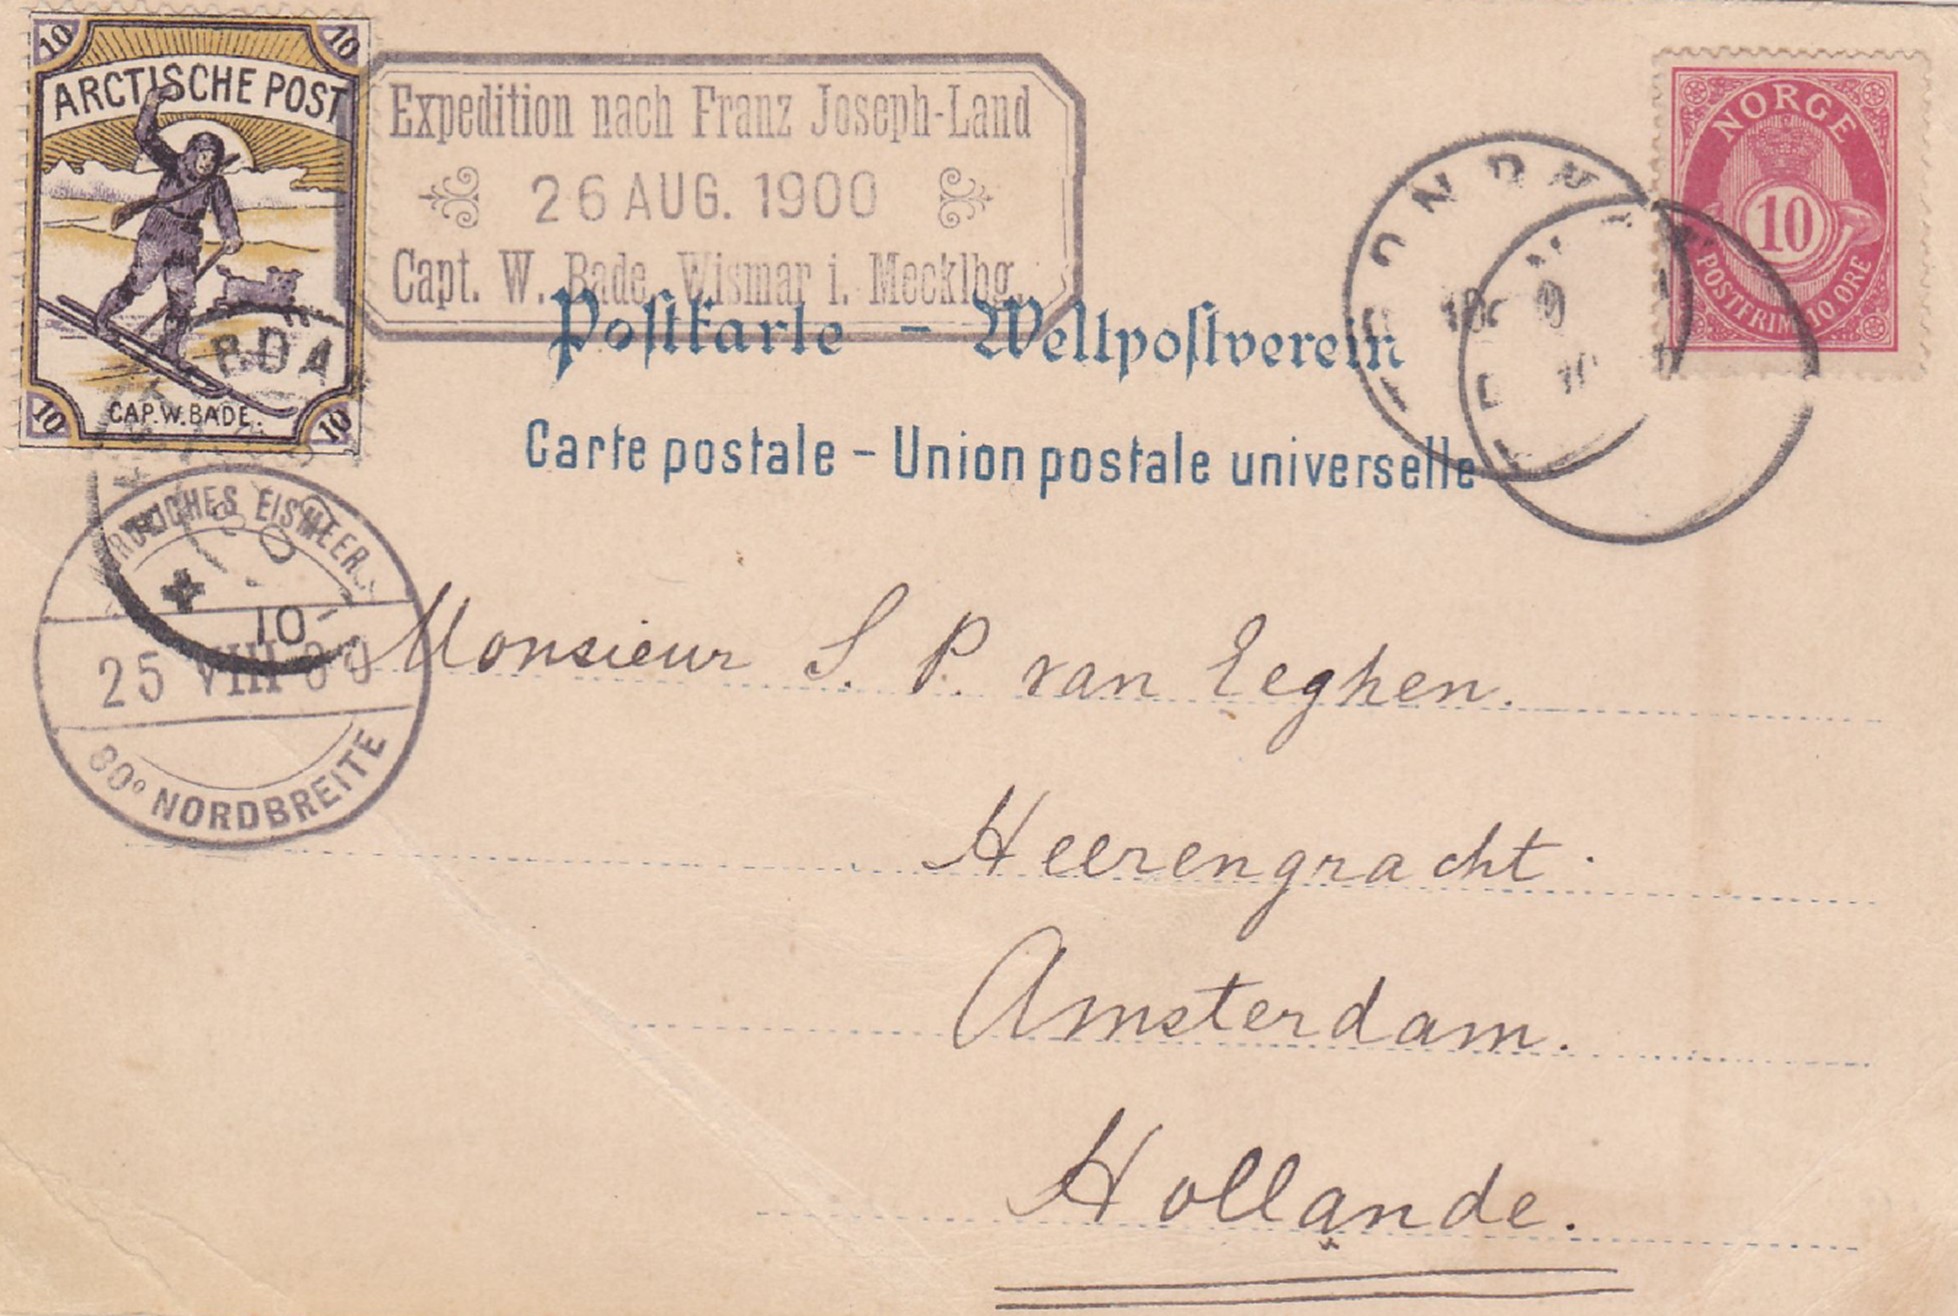 10 10
ARCTISCHE POST
CAP. W. BADE.
10 10
Expedition nach Franz Joseph-Land
26 AUG. 1900
Capt. W. Bade, Wismar i. Mecklbg.
NORGE
10
POSTFRIM. 10 ØRE
Postkarte - Weltpostverein
Carte postale - Union postale universelle
BDA
10
RDLICHES EISMEER
25 VIII 00
80° NORDBREITE
Monsieur S. P. van Eeghen.
Heerengracht.
Amsterdam.
Hollande.